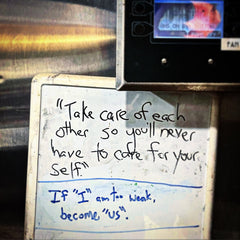 "Take care of each
other so you'll never
have to care for your
self."
If "I" am too weak,
become "us".